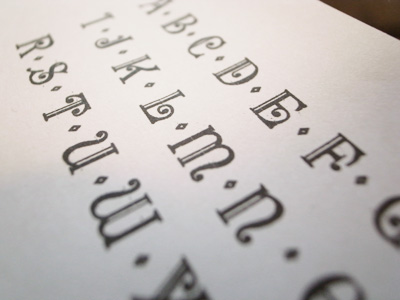 A · B · C · D · E · F · G
I · J · K · L · M · N · O
R · S · T · U · W · X